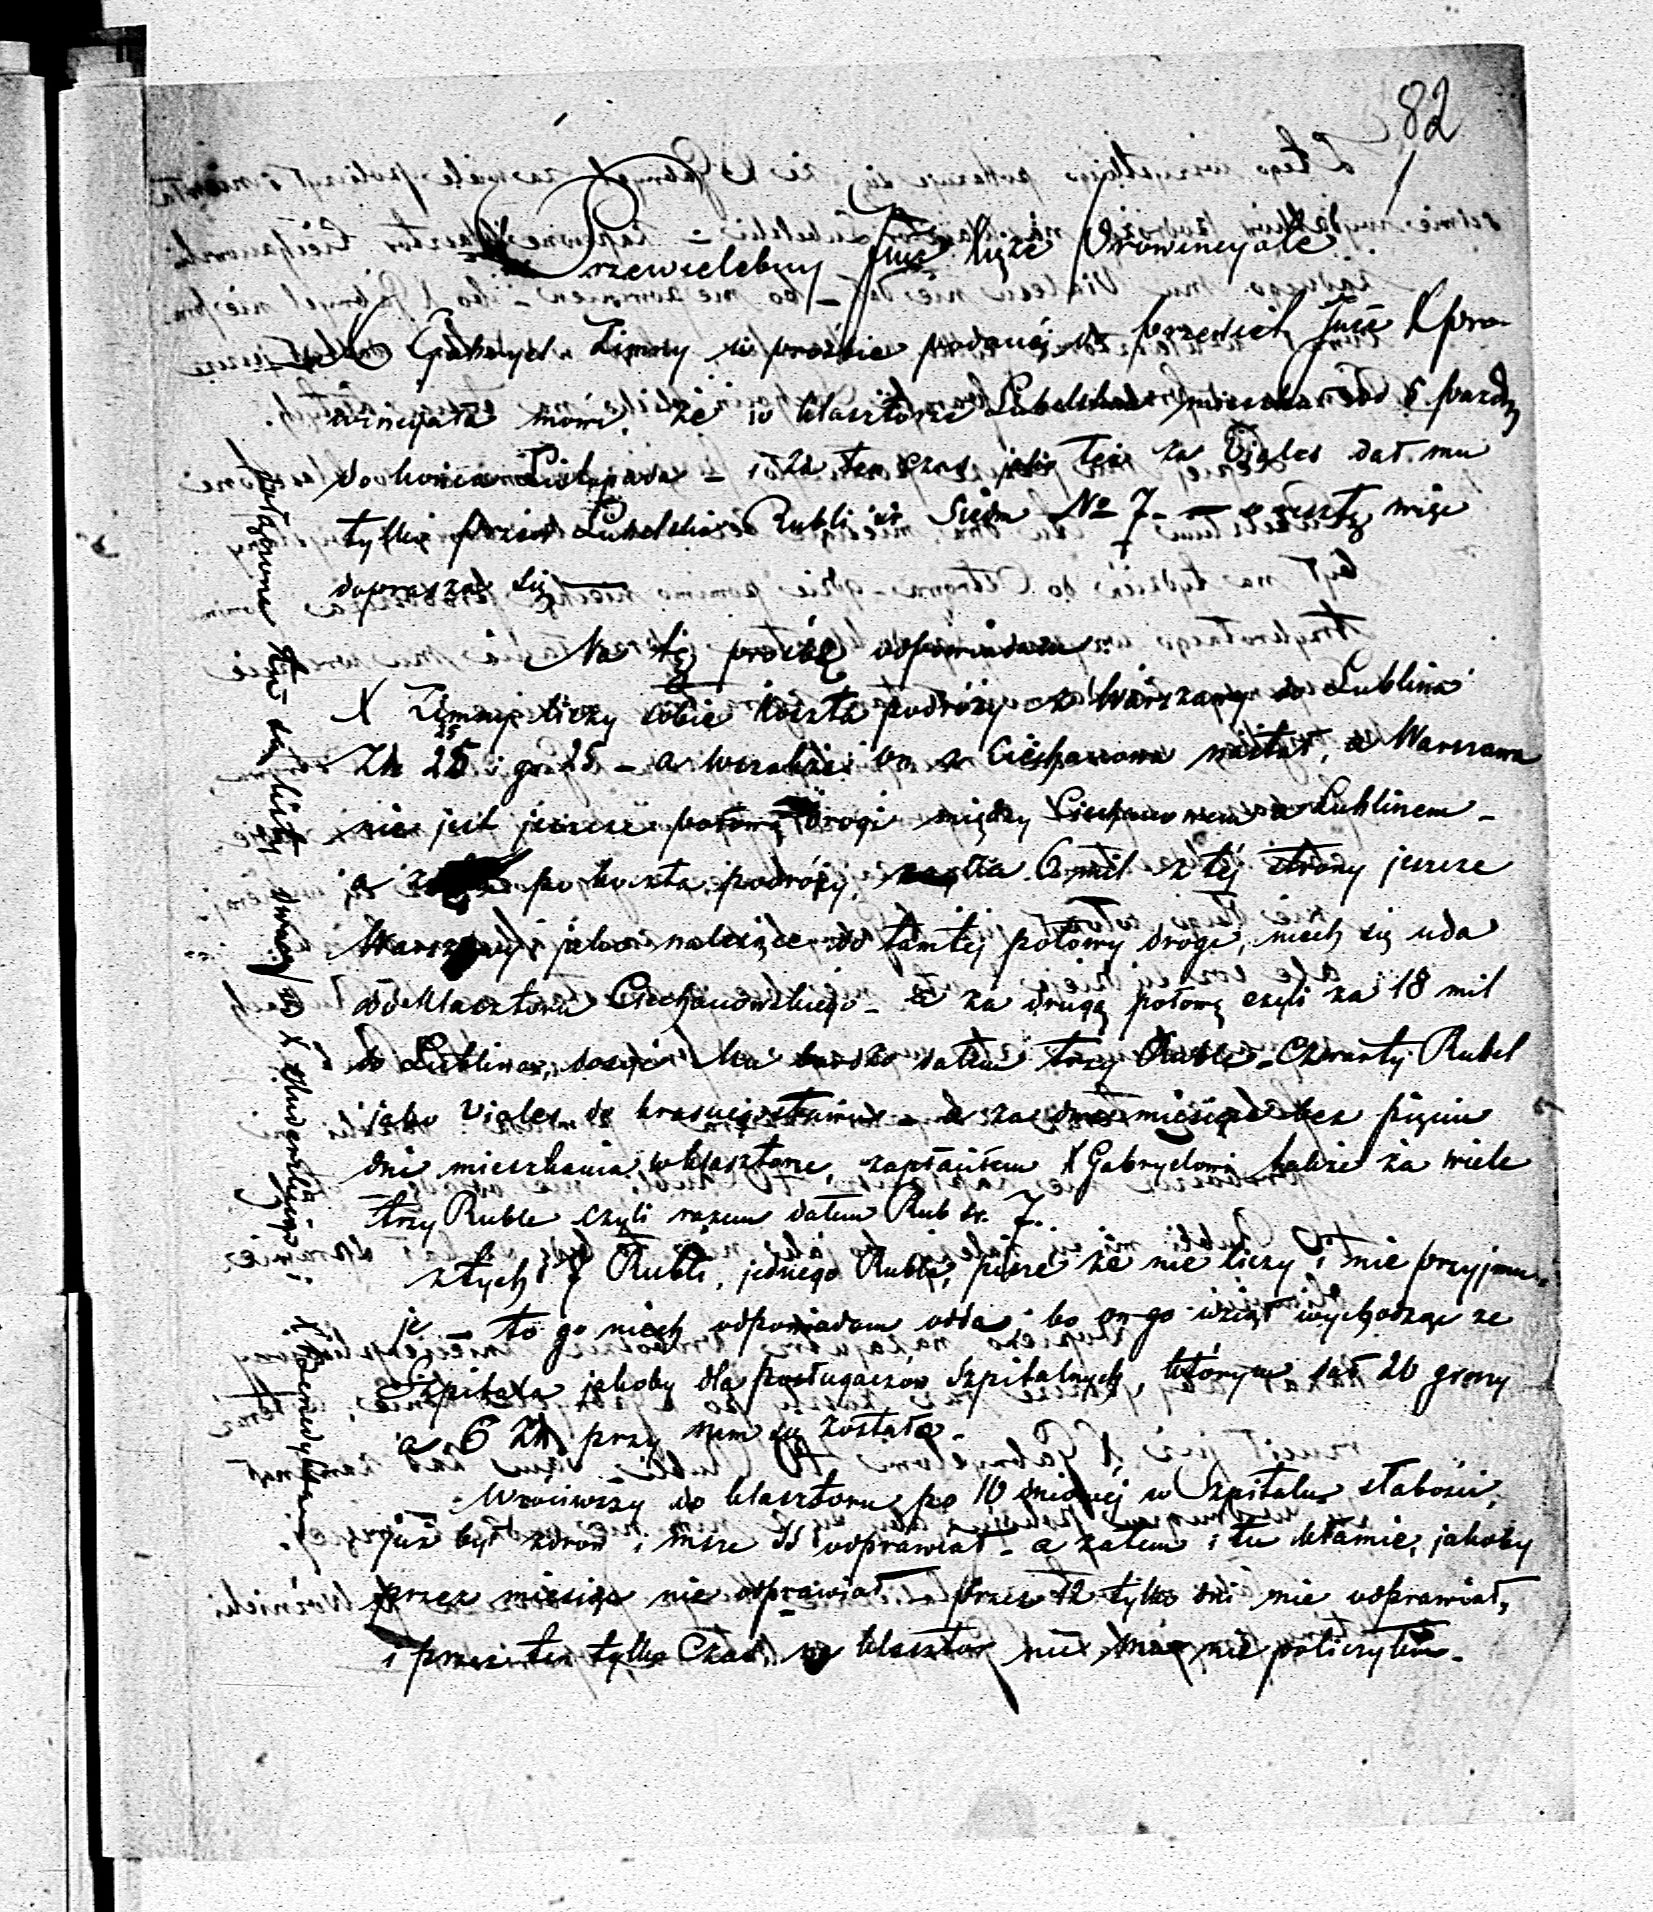 82
Przewielebny Jmć Xięże Prowincyale
X Gabryel Zimny w prośbie podanéj do przewieleb Jmć X Pro-
wincyała mówi, że w klasztorze Lubelskim mieszkał od 6 paźdz
do końca Listopada – i za ten czas jako też za Viales dał mu
tylko przeor Lubelski Rubli sr. Siedm No 7 – o resztę więc
doprasza się
Na tę prośbę odpowiadam:
X Zimny liczy sobie koszta podróży z Warszawy do Lublina
Zł 25 i gr 25 – a wszakże on z Ciechanowa nastał, a Warszawa
nie jest jeszcze połową drogi między Ciechanowem a Lublinem –
a po koszta podróży, za 6 mil z téj strony jeszcze
Warszawy, jako należące do tamtéj połowy drogi, niech się uda
do klasztoru Ciechanowskiego – a za drugą połowę czyli za 18 mil
do Lublina, dosyć Mu dałem trzy Ruble – Czwarty Rubel
jako Viales do Krasnegostawu – a za dwa miesiące bez pięciu
dni mieszkania w klasztorze, zapłaciłem X Gabryelowi także za wiele
trzy Ruble czyli razem dałem Rub sr. 7.
z tych 7 Rubli, jednego Rubla, pisze że nie liczy i nie przyjmu-
je – to go niech odpowiadam odda bo on go wziął wychodząc ze
Szpitala jakoby dla posługaczów Szpitalnych, którym dał 20 groszy
a 6 Zł przy nim się zostało –
Wróciwszy do klasztoru po 10 dniowéj w Szpitalu słabości,
już był zdrów i msze SS odprawiał – a zatem i tu kłamie, jakoby
przez miesiąc nie odprawiał – przez 12 tylko dni nie odprawiał,
i przez ten tylko Czas, na klasztor nic mu nie policzyłem –
Załączone tu są listy dwa, X Benedykta